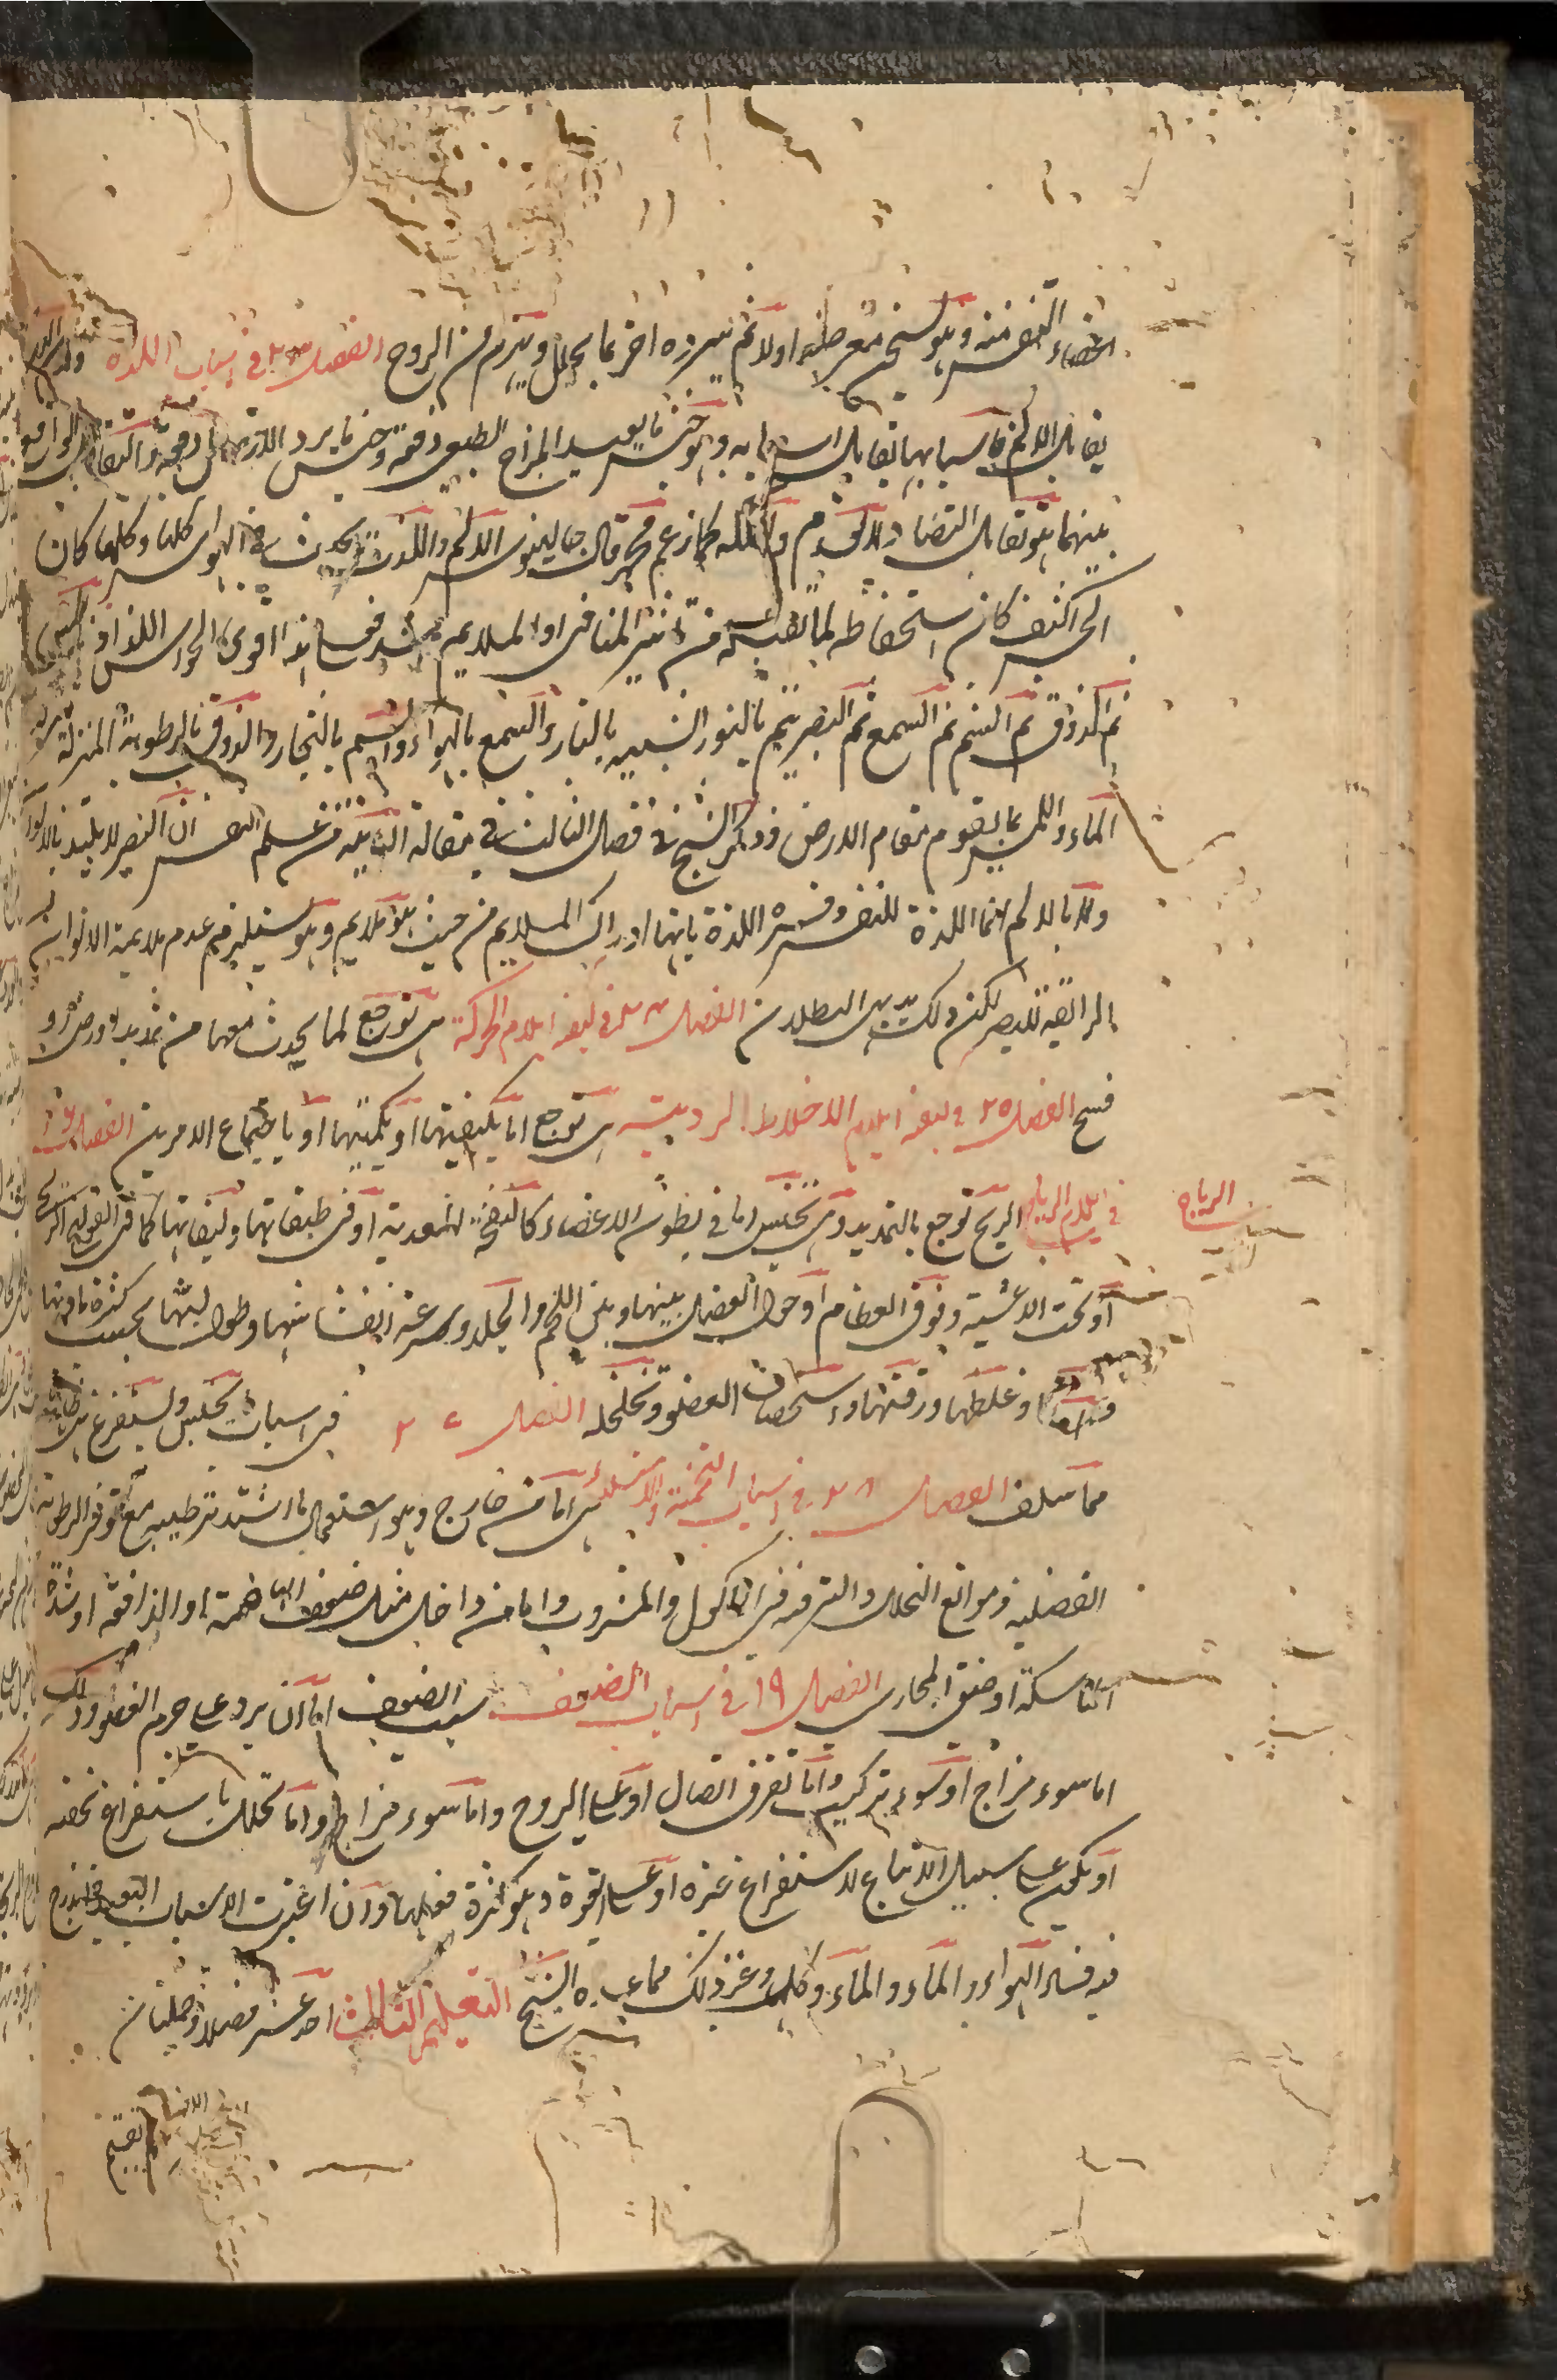 اخضاء النفس منه وهو يسخن بعرضه اولا ثم يبرده اخرا بما يحلل وينهزم من الروح الفصل ٢٣ في اسباب اللذة ولان اللذة
يقابل الالم فاسبابها تقابل اسبابه وهو جنس ما يعيد المزاج الطبيعي دفعة وجنس ما يرد الاتصال دفعة والتقابل الواقع
بينهما هو تقابل التضاد لا العدم والملكة كما زعم قال جالينوس الالم واللذة يحدث في الحواس كلها وكلما كان
الحس اكثف كان استحفاظه لما يقبله من تاثير المنافي او الملايم اشد فحساسته اقوى الحواس اللذاذ اللمس
ثم الذوق ثم الشم ثم السمع ثم البصر يتم بالنور الشبيه بالنار والسمع بالهواء والشم بالبخار والذوق بالرطوبة المنزلة منزلة
الماء واللمس بما يقوم مقام الارض وذكر الشيخ في فصل الثالث في مقالة الثانية من علم النفس ان البصر لا يلتذ بالالوان
ولا يالم انما اللذة للنفس وفسر اللذة بانها ادراك الملايم من حيث هو ملايم وهو يستلزم عدم ملايمة الالوان
الرايقة للبصر لكن ذلك بديهي البطلان الفصل ٢٤ في كيفية ايلام الحركة هي توجع لما يحدث معها من تمديد او رض او
فسخ الفصل ٢٥ في كيفية ايلام الاخلاط الردية هي توجع اما بكيفيتها او بكميتها او باجتماع الامرين الفصل ٢٦
الرياح
في ايلام الرياح الريح توجع بالتمديد وهي تحتبس اما في بطون الاعضاء كالنفخة المعدية او في طبقاتها وليفاتها كما في القولنج الريحي
او تحت الاغشية وفوق العظام او حول العضل بينها وبين اللحم والجلد وسرعة انفشاشها وطول لبثها بحسب كثرة مادتها
وقلتها وغلظها ورقتها واستحصاف العضو وتخلخله الفصل ٢٧ في اسباب ما يحتبس ويستفرغ هي ظاهرة
مما سلف الفصل ٢٨ في اسباب التخمة والامتلاء هي اما من خارج وهو استعمال ما اشتد ترطيبه مع توفر الرطوبة
الفضلية وموانع التحلل والترفه في الماكول والمشروب واما من داخل مثل ضعف الهاضمة او الدافعة او شدة
الماسكة او ضيق المجاري الفصل ٢٩ في اسباب الضعف سبب الضعف اما ان يرد على جرم العضو وذلك
اما سوء مزاج او سوء تركيب واما تفرق اتصال او على الروح واما سوء مزاج واما تحلل باستفراغ يخصه
او يكون على سبيل الاتباع لاستفراغ غيره او على القوة وهو كثرة فعلها وان اعتبرت الاسباب البعيدة فيندرج
فيه فساد الهواء والماء والماكل وغير ذلك مما عده الشيخ التعليم الثالث احد عشر فصلا وجملتان